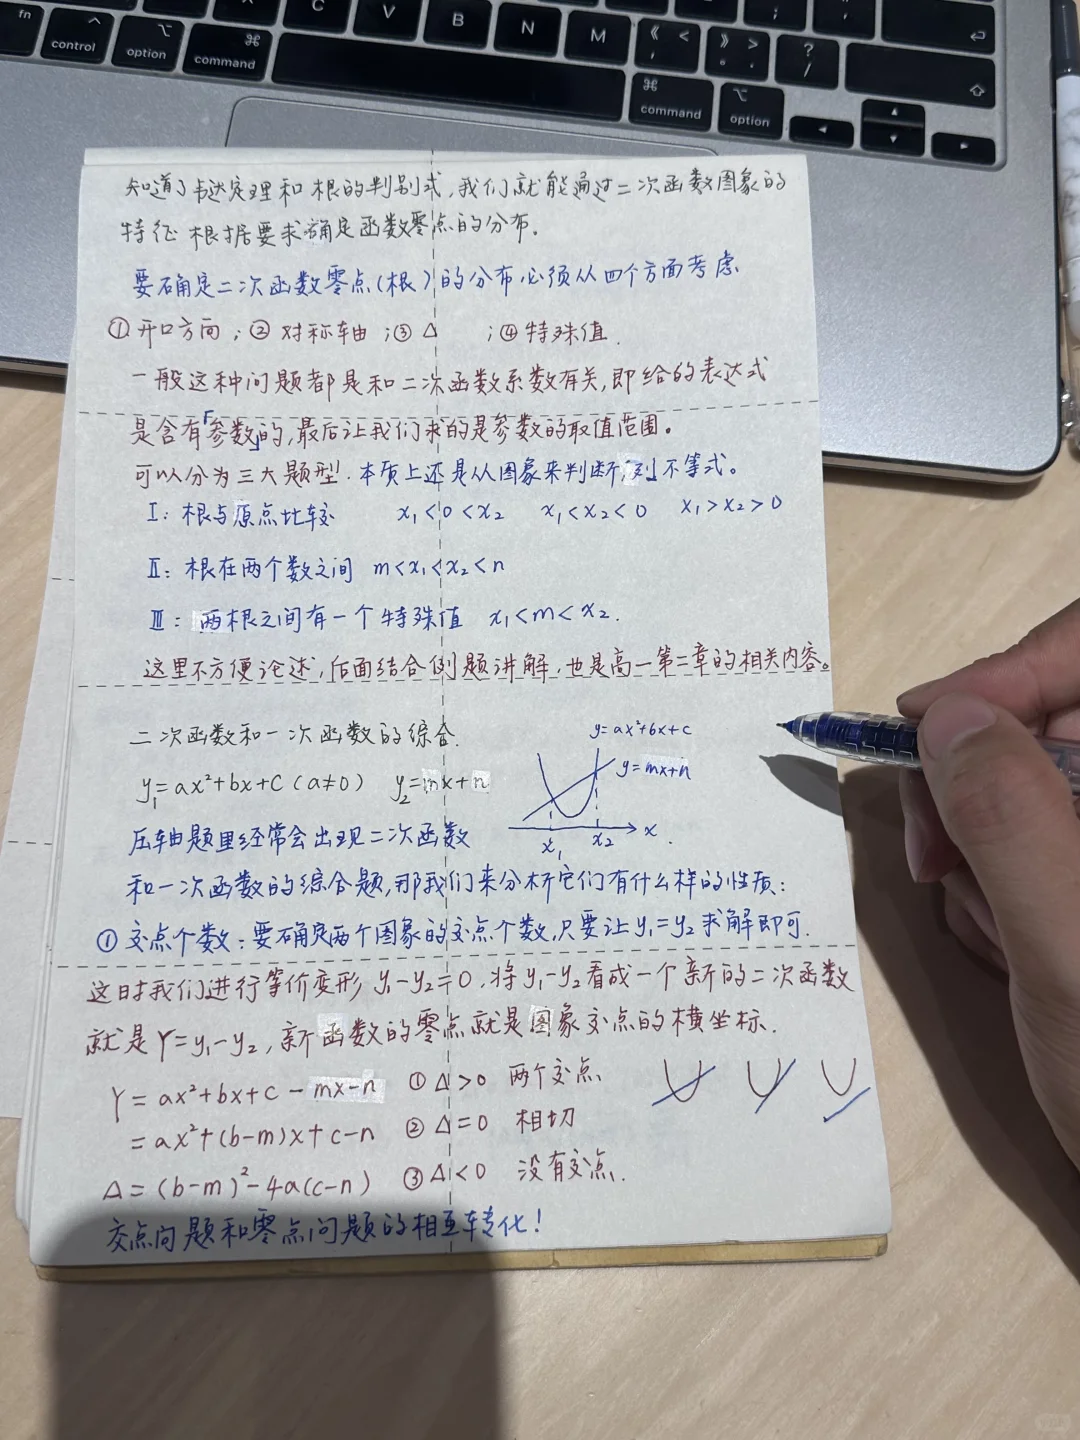 fn
control
option
⌘
command
C
V
B
N
M
《 <
， 。
》 >
。 .
?
/
⌘
command
option
知道了韦达定理和根的判别式，我们就能通过二次函数图象的
特征根据要求确定函数零点的分布。
要确定二次函数零点（根）的分布必须从四个方面考虑
①开口方向；②对称轴；③Δ ；④特殊值．
一般这种问题都是和二次函数系数有关，即给的表达式
是含有「参数」的，最后让我们求的是参数的取值范围。
可以分为三大题型．本质上还是从图象来判断列不等式。
Ⅰ：根与原点比较 x₁<0<x₂ x₁<x₂<0 x₁>x₂>0
Ⅱ：根在两个数之间 m<x₁<x₂<n
Ⅲ：两根之间有一个特殊值 x₁<m<x₂．
这里不方便论述，后面结合例题讲解，也是高一第二章的相关内容。
二次函数和一次函数的综合．
y=ax²+bx+c
y₁=ax²+bx+c（a≠0） y₂=mx+n
y=mx+n
x₁ x₂ x
压轴题里经常会出现二次函数
和一次函数的综合题，那我们来分析它们有什么样的性质：
①交点个数：要确定两个图象的交点个数，只要让y₁=y₂求解即可．
这时我们进行等价变形 y₁-y₂=0．将y₁-y₂看成一个新的二次函数
就是Y=y₁-y₂，新函数的零点就是图象交点的横坐标．
Y=ax²+bx+c-mx-n ①Δ>0 两个交点
=ax²+(b-m)x+c-n ②Δ=0 相切
Δ=(b-m)²-4a(c-n) ③Δ<0 没有交点．
交点问题和零点问题的相互转化！